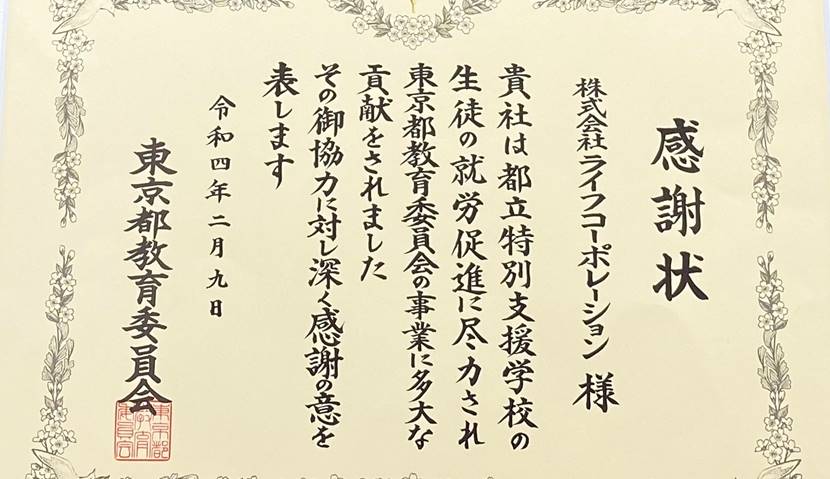 感謝状
株式会社ライフコーポレーション 様
貴社は都立特別支援学校の
生徒の就労促進に尽力され
東京都教育委員会の事業に多大な
貢献をされました
その御協力に対し深く感謝の意を
表します
令和四年二月九日
東京都教育委員会
東京都
教育
委員会